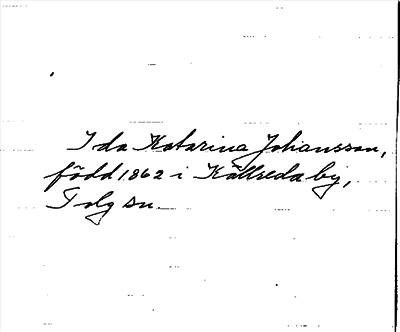 Ida Katarina Johansson,
född 1862 i Källreda by,
Tolg sn.